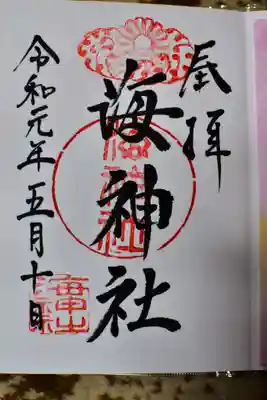 奉拝
海神社
令和元年五月十日